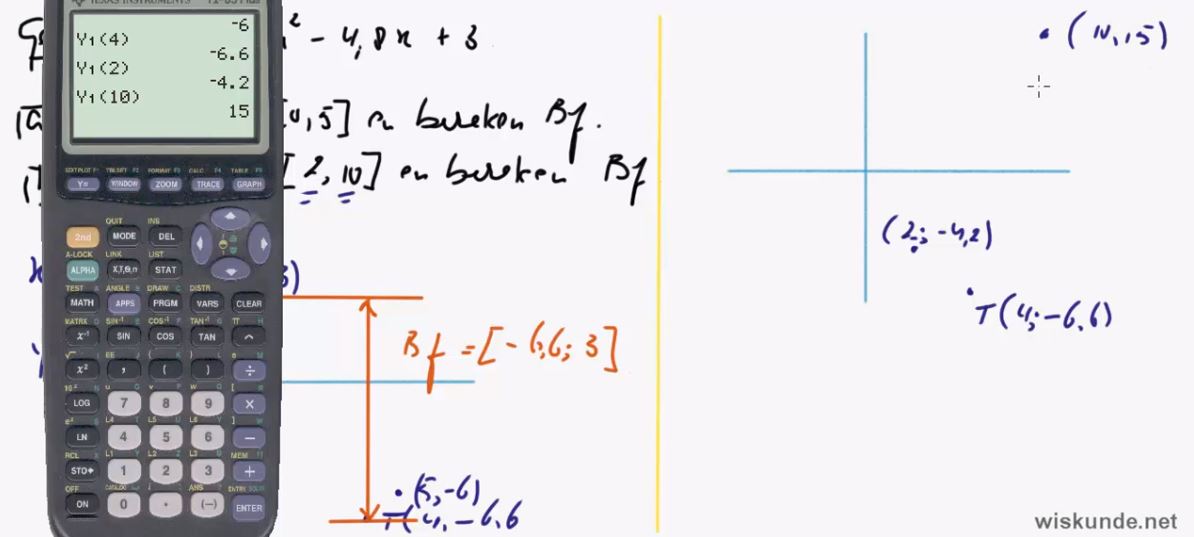 TEXAS INSTRUMENTS TI-83 Plus
-6
Y₁(4)
-6.6
Y₁(2)
-4.2
Y₁(10)
15
² - 4,8x + 3
,5] en bereken Bf.
[2, 10] en bereken Bf
(10, 15)
(2; -4,2)
T(4; -6,6)
3)
Bf = [-6,6; 3]
(5, -6)
T(4, -6,6
STAT PLOT F1 TBLSET F2 FORMAT F3 CALC F4 TABLE F5
Y= WINDOW ZOOM TRACE GRAPH
QUIT INS
2nd MODE DEL
A-LOCK LINK LIST
ALPHA X,T,θ,n STAT
TEST A ANGLE B DRAW C DISTR
MATH APPS PRGM VARS CLEAR
MATRX D SIN⁻¹ E COS⁻¹ F TAN⁻¹ G π H
x⁻¹ SIN COS TAN ^
√ I EE J { K } L e M
x² , ( ) ÷
10ˣ N u O v P w Q [ R
LOG 7 8 9 ×
eˣ S L4 T L5 U L6 V ] W
LN 4 5 6 −
RCL X L1 Y L2 Z L3 θ MEM "
STO▸ 1 2 3 +
OFF CATALOG i ANS ENTRY SOLVE
ON 0 . (−) ENTER
wiskunde.net